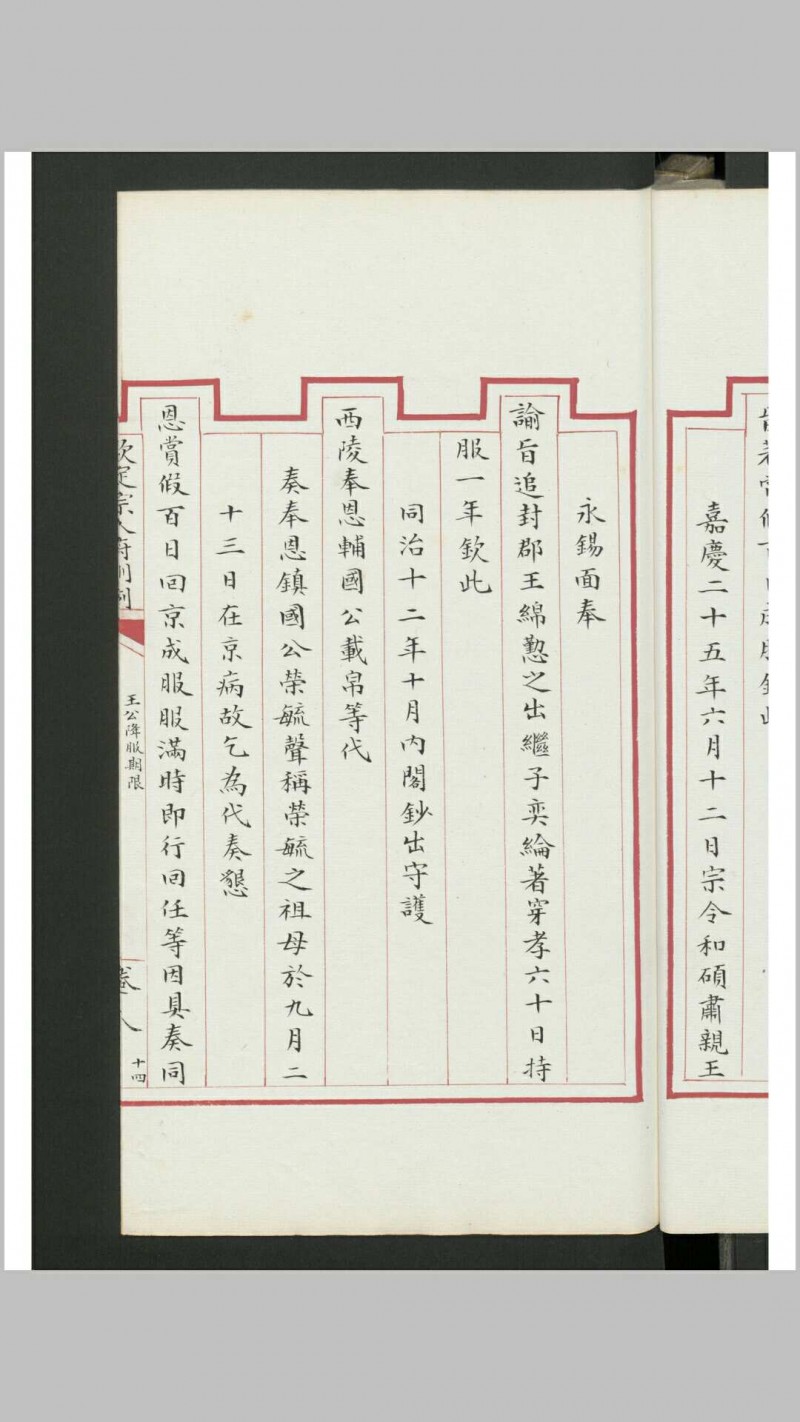 嘉慶二十五年六月十二日宗令和碩肅親王
永錫面奉
諭旨追封郡王綿懃之出繼子奕綸著穿孝六十日持
服一年欽此
同治十二年十月內閣鈔出守護
西陵奉恩輔國公載帛等代
奏奉恩鎮國公榮毓聲稱榮毓之祖母於九月二
十三日在京病故乞為代奏懇
恩賞假百日回京成服服滿時即行回任等因具奏同
欽定宗人府則例
王公降服期限
十四